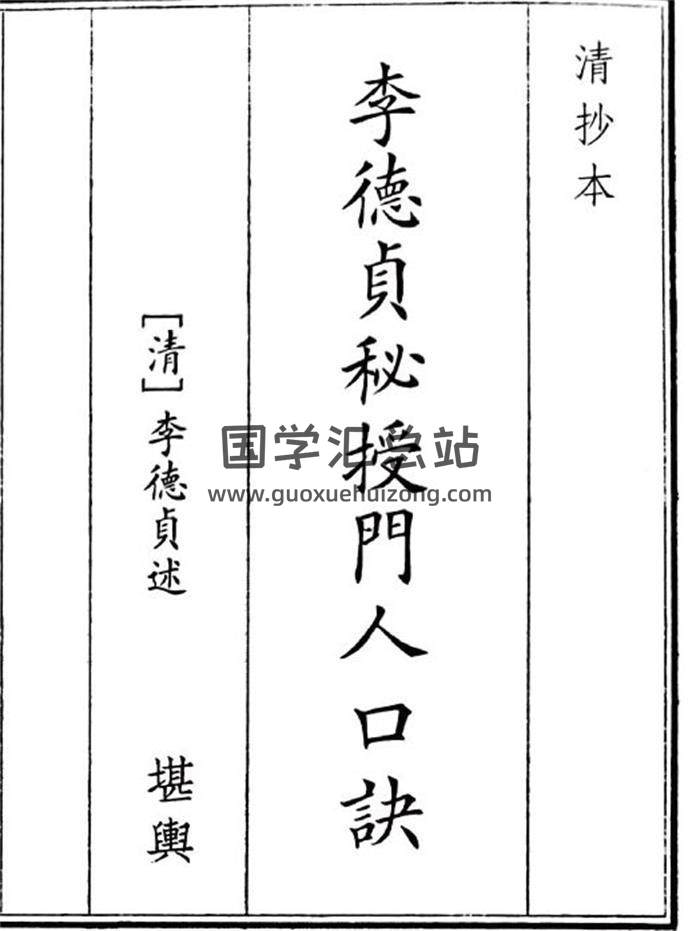 清抄本
李德貞秘授門人口訣
[清]李德貞述
堪輿
国学汇总站
www.guoxuehuizong.com